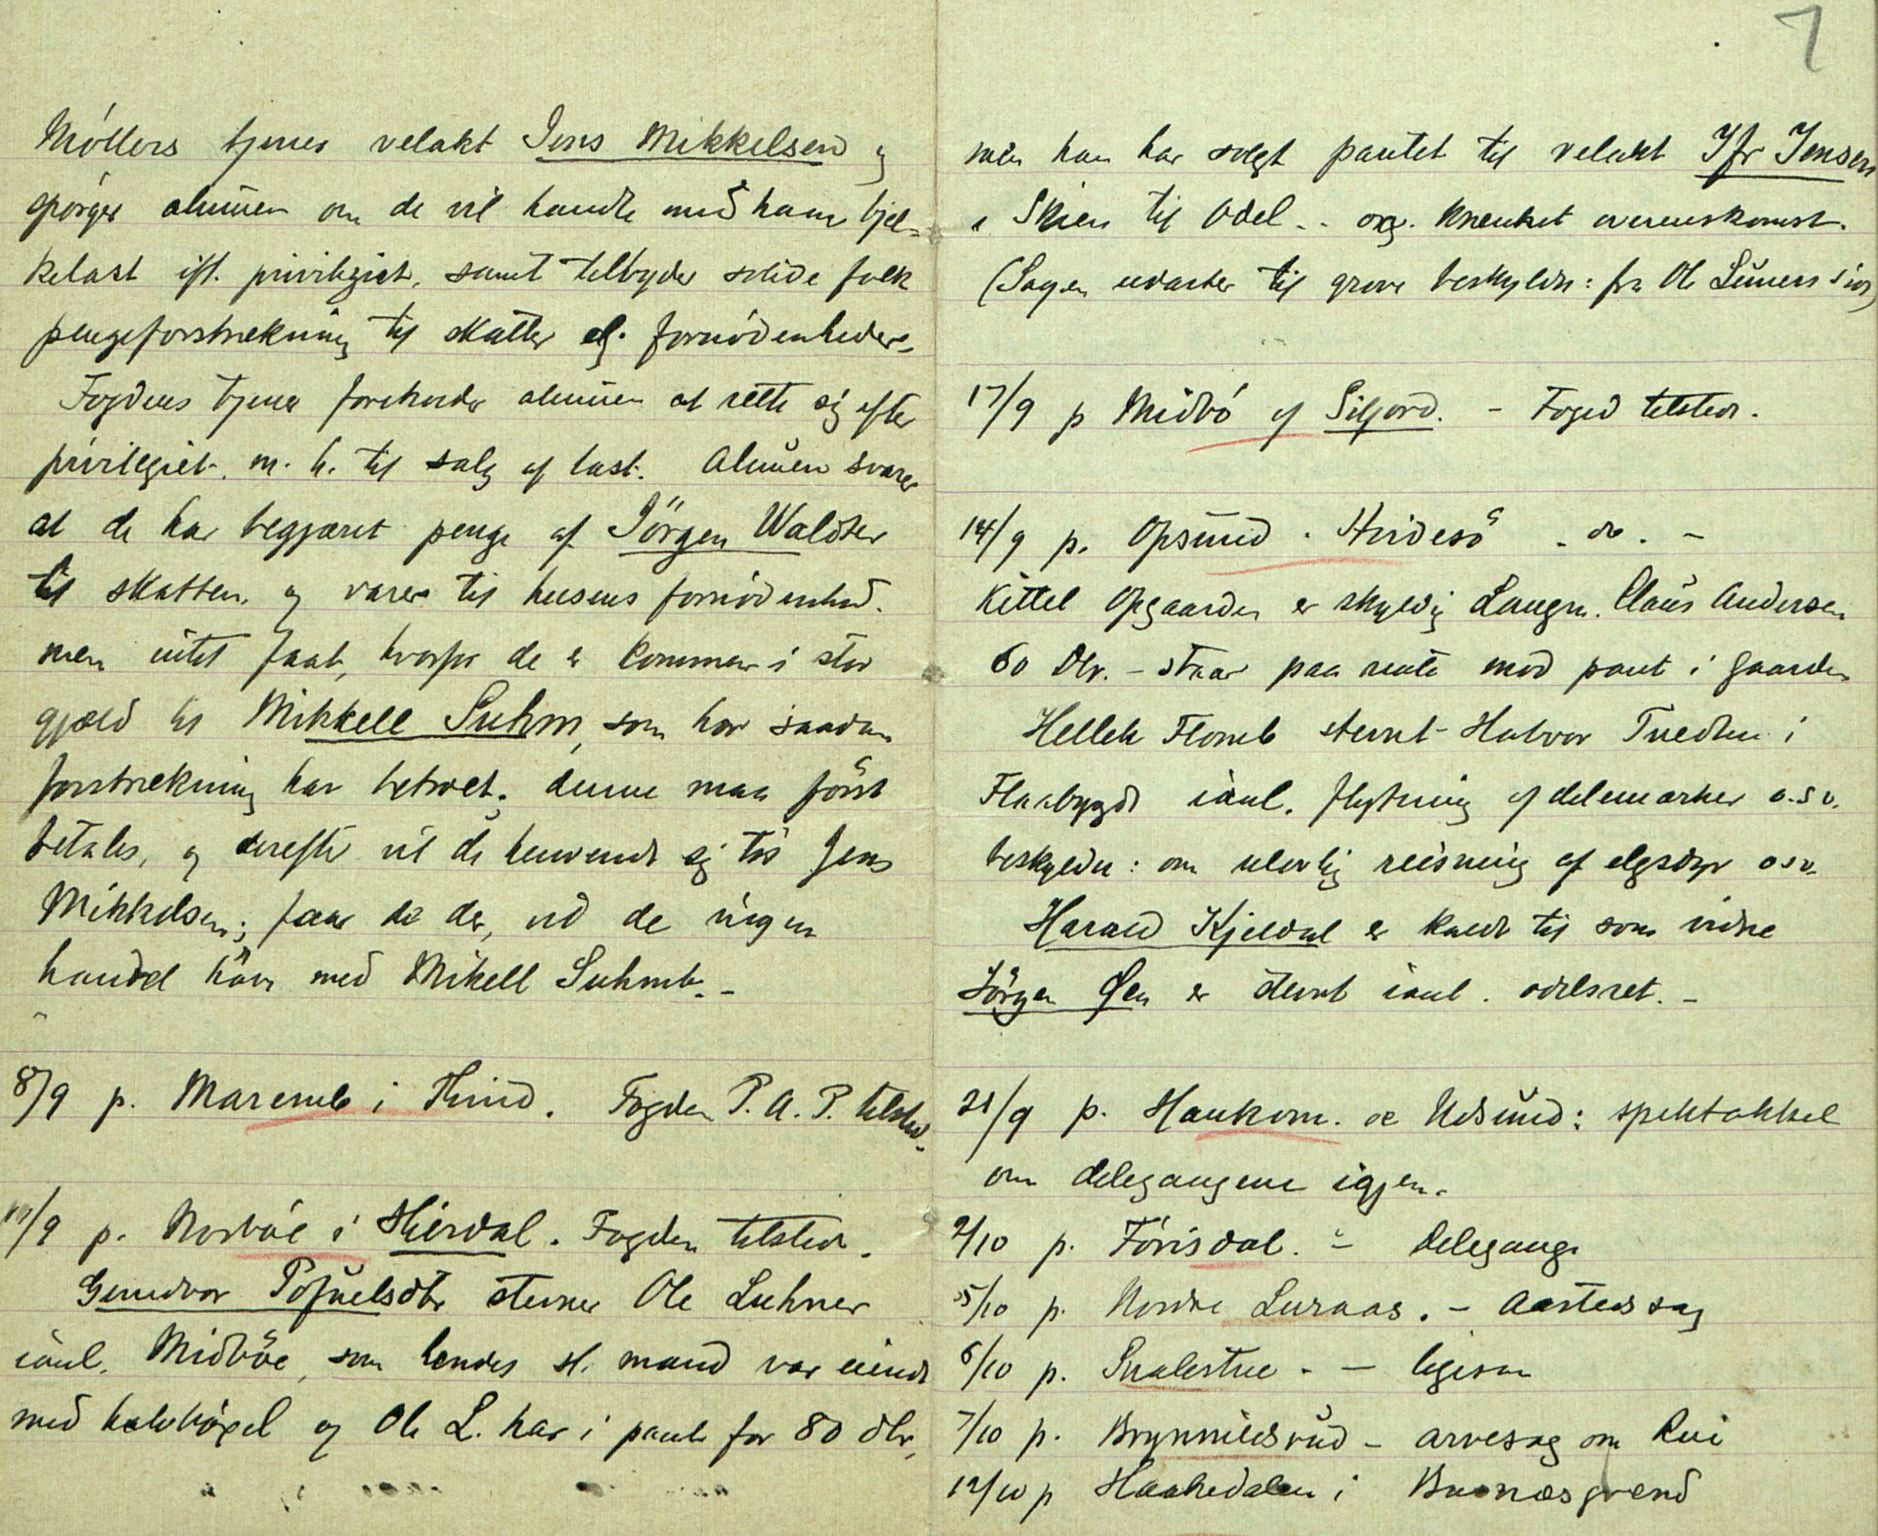 7
Møllers tjener velakt Jens Mikkelsen og
spørger almuen om de vil handle med ham bjel-
kelast ifl. privilegiet, samt tilbyder solide folk
pengeforstrækning til skatter og fornødenheder.
Fogdens tjener foreholder almuen at rette sig efter
privilegiet m. h. til salg af last. Almuen svarer
at de har begjæret penge af Jörgen Waldter
til skatten og varer til husens fornödenhed.
men intet faat, hvorfor de er kommen i stor
gjæld til Mikkell Suhm, som har saadan
forstrækning har betroet. denne maa först
betales, og derefter vil de henvende sig til Jens
Mikkelsen; faar de der, vil de ingen
handel have med Mikell Suhmb. -
8/9 p. Maremb i Thind. Fogden P. A. P. tilsted.
p. Norböe i Hierdal. Fogden tilstede.
Gundvor Pofuelsdtr stevner Ole Luhner
ianl. Midböe, som hendes sl. mand var eiende
med halvbögel og Ole L. har i pant for 80 dlr,
men han har solgt pantet til velakt Ifr Jensen
i Skien til Odel - og krænket overenskomst.
(Sagen udarter til grove beskyldn: fra Ole Luners side)
17/9 p Midbö af Siljord. - Foged tilstede.
14/9 p. Opsund. Hvidesö - do. -
Kittel Opgaarden er skyldig Laugm. Claus Andersen
60 Dlr. - staar paa rente mod pant i gaarden
Hellek Flomb stevnt Halvor Tvedten i
Flaabygd ianl. flytning af delemærker o.s.v.
beskyldn: om ulovlig reisning af elgsdyr osv.
Harald Kjeldal er kaldt til som vidne
Jörgen Øen er stevnt ianl. odelsret. -
21/9 p. Haukom. Udsund: spektakkel
om delegangene igjen.
2/10 p. Förisdal. - delegange
5/10 p. Nordre Luraas. - Aastedssag
6/10 p. Sualestue. - ligesaa
7/10 p. Brynnildsrud - arvesag om Rui
12/10 p Haakedalen i Bunæsgrend